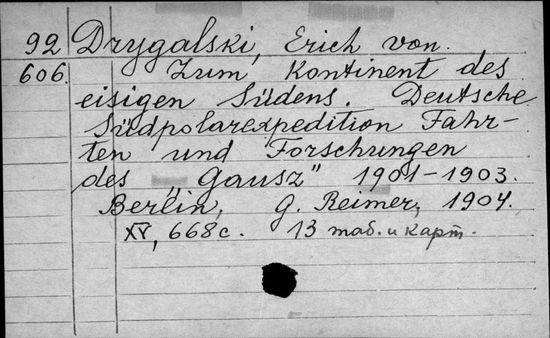 92 Drygalski, Erich von.
606. Zum Kontinent des
eisigen Südens. Deutsche
Südpolarexpedition Fahr-
ten und Forschungen
des „Gausz” 1901-1903.
Berlin, G. Reimer, 1904.
XV, 668 с. 13 таб. и карт.